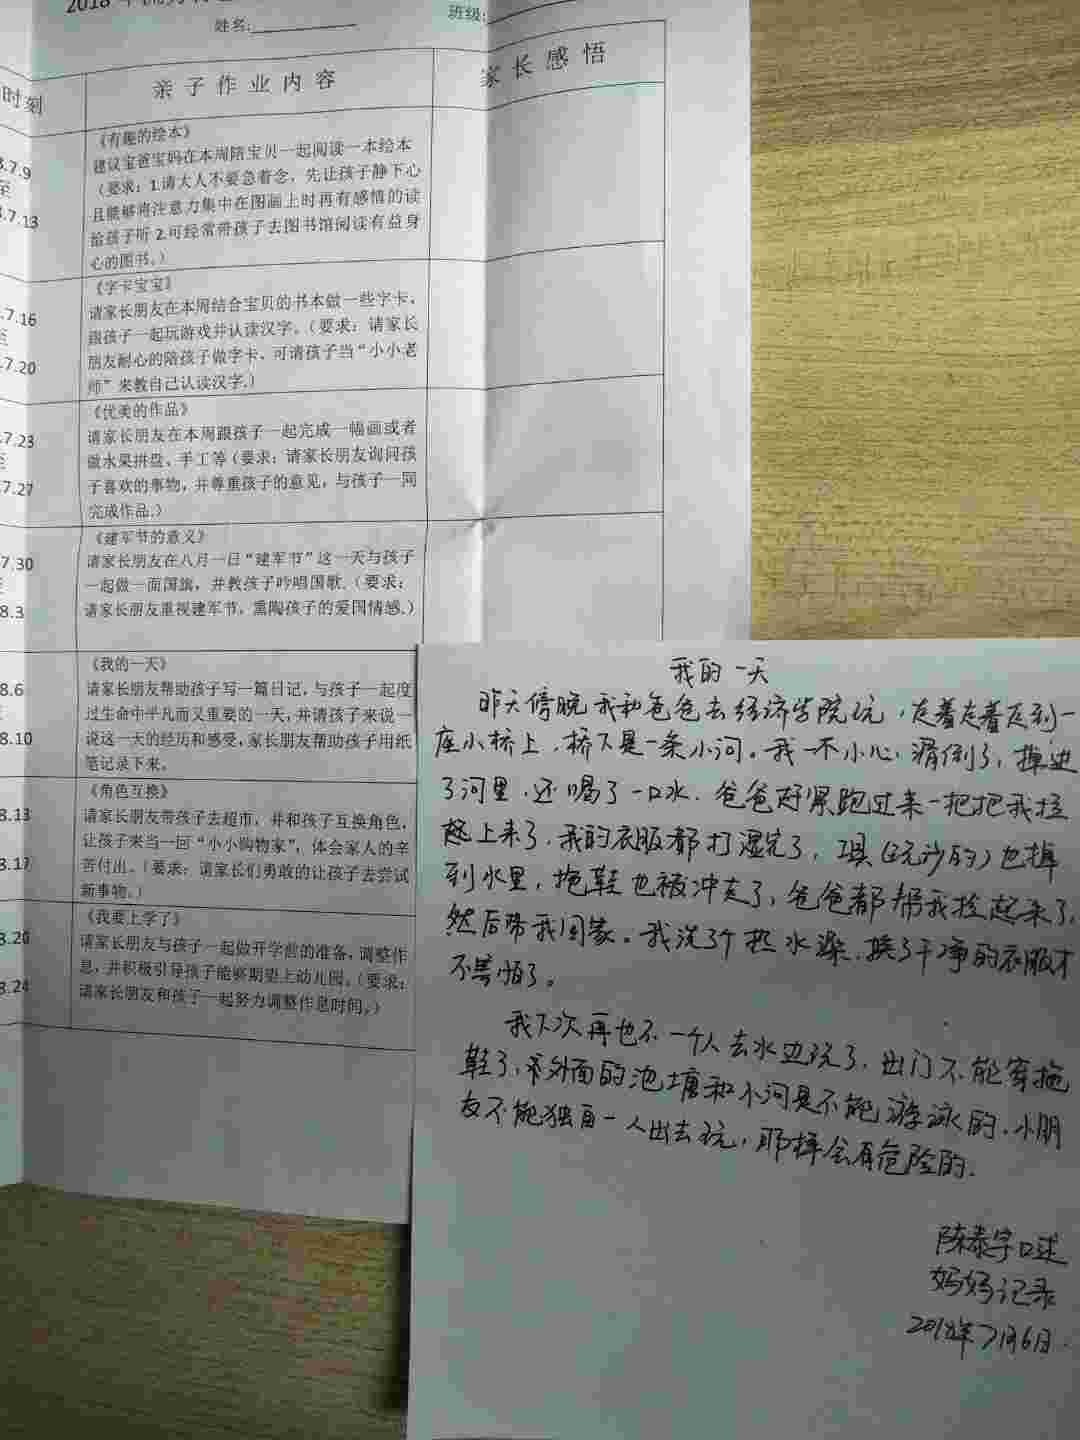 2018年
姓名:
班级:
时刻
亲子作业内容
家长感悟
.7.9
至
.7.13
《有趣的绘本》
建议宝爸宝妈在本周陪宝贝一起阅读一本绘本
（要求：1.请大人不要急着念，先让孩子静下心
且能够将注意力集中在图画上时再有感情的读
给孩子听 2.可经常带孩子去图书馆阅读有益身
心的图书。）
.7.16
至
.7.20
《字卡宝宝》
请家长朋友在本周结合宝贝的书本做一些字卡，
跟孩子一起玩游戏并认读汉字。（要求：请家长
朋友耐心的陪孩子做字卡，可请孩子当“小小老
师”来教自己认读汉字。）
.7.23
至
.7.27
《优美的作品》
请家长朋友在本周跟孩子一起完成一幅画或者
做水果拼盘、手工等（要求：请家长朋友询问孩
子喜欢的事物，并尊重孩子的意见，与孩子一同
完成作品。）
.7.30
8.3
《建军节的意义》
请家长朋友在八月一日“建军节”这一天与孩子
一起做一面国旗，并教孩子吟唱国歌.（要求：
请家长朋友重视建军节，熏陶孩子的爱国情感。）
8.6
8.10
《我的一天》
请家长朋友帮助孩子写一篇日记，与孩子一起度
过生命中平凡而又重要的一天，并请孩子来说一
说这一天的经历和感受，家长朋友帮助孩子用纸
笔记录下来。
8.13
8.17
《角色互换》
请家长朋友带孩子去超市，并和孩子互换角色，
让孩子来当一回“小小购物家”，体会家人的辛
苦付出。（要求：请家长们勇敢的让孩子去尝试
新事物。）
8.20
8.24
《我要上学了》
请家长朋友与孩子一起做开学前的准备，调整作
息，并积极引导孩子能够期望上幼儿园。（要求：
请家长朋友和孩子一起努力调整作息时间。）
我的一天
昨天傍晚我和爸爸去经济学院玩，走着走着走到一
座小桥上，桥下是一条小河。我一不小心，滑倒了，掉进
了河里，还喝了一口水，爸爸赶紧跑过来一把把我拉
起上来了，我的衣服都打湿完了，工具（玩沙的）也掉
到水里，拖鞋也被冲走了，爸爸都帮我捡起来了，
然后带我回家。我洗了个热水澡，换了干净的衣服才
不害怕了。
我下次再也不一个人去水边玩了，出门不能穿拖
鞋了，外面的池塘和小河是不能游泳的，小朋
友不能独自一人出去玩，那样会有危险的.
陈泰宇口述
妈妈记录
2018年7月6日.